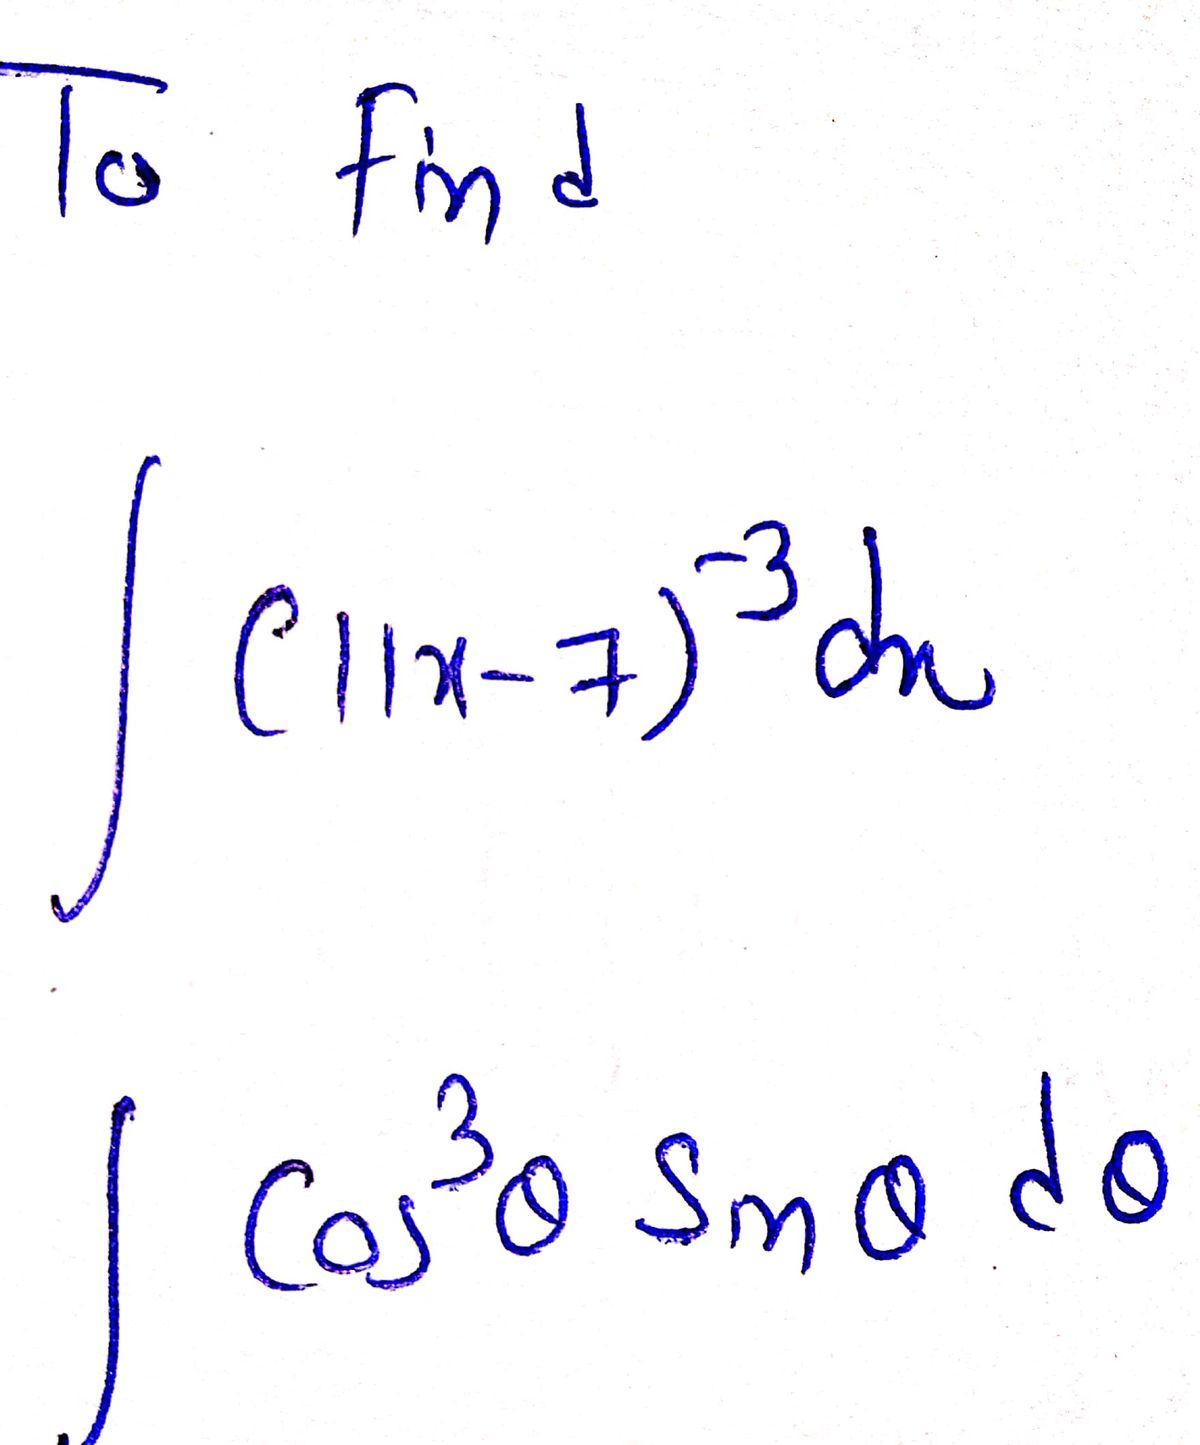 To find
∫ (11x-7)⁻³ dx
∫ Cos³θ Sinθ dθ